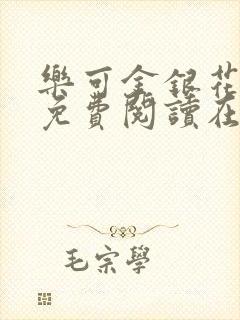 樂可金銀花
免費閱讀在
毛宗學